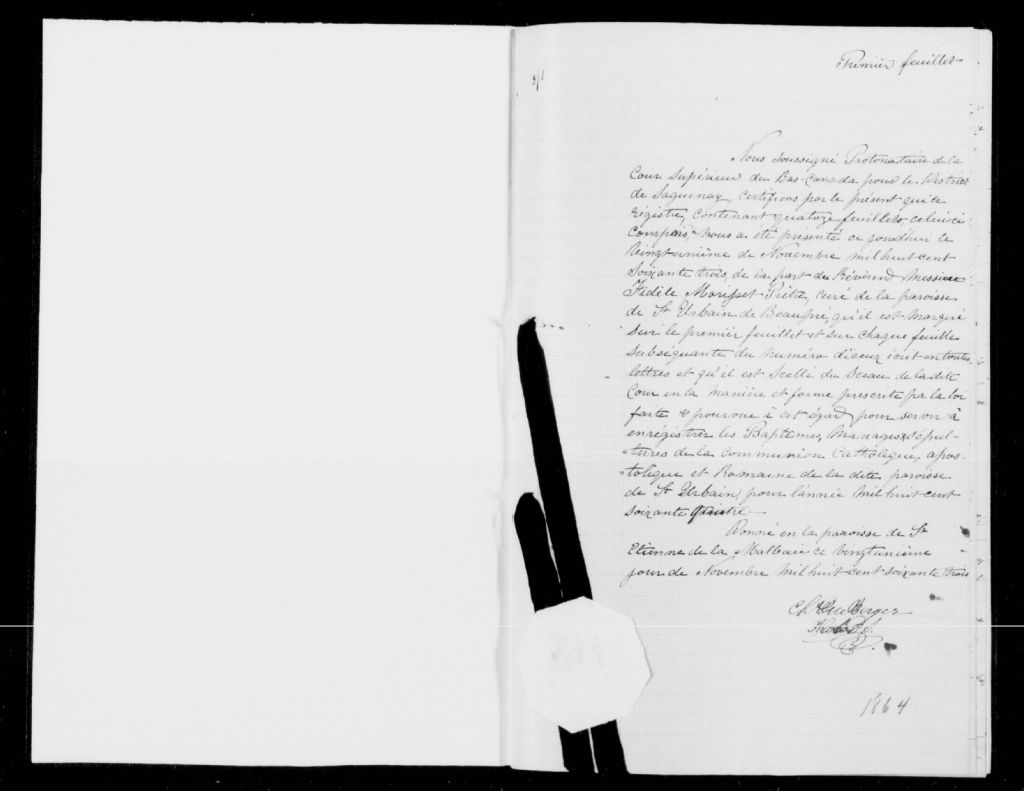 Premier feuillet
Nous soussigné Protonotaire de la
Cour Supérieur du Bas-Canada pour le District
de Saguenay, Certifions par le présent que ce
régistre, contenant quatorze feuillets, celuici
Compris, nous a été présenté ce jourdhui le
vingtunième de Novembre mil huit cent
soixante trois, de la part du Révérend Messire
Fidèle Morisset Prêtre, curé de la paroisse
de St Urbain de Beaupré, qu'il est marqué
sur le premier feuillet et sur chaque feuille
subsequante du numéro écrit en toutes
lettres et qu'il est scellé du Sceau de la dite
Cour en la manière et forme prescrite par la loi
faite & pourvue à cet égard, pour servir à
enrégistrer les Baptemes, Mariages & Sépul-
=tures de la Communion Catholique, apos-
=tolique et Romaine de la dite paroisse
de St Urbain, pour l'année mil huit cent
soixante quatre
Donné en la paroisse de St
Etienne de la Malbaie ce vingtunième
jour de Novembre mil huit cent soixante trois
1864